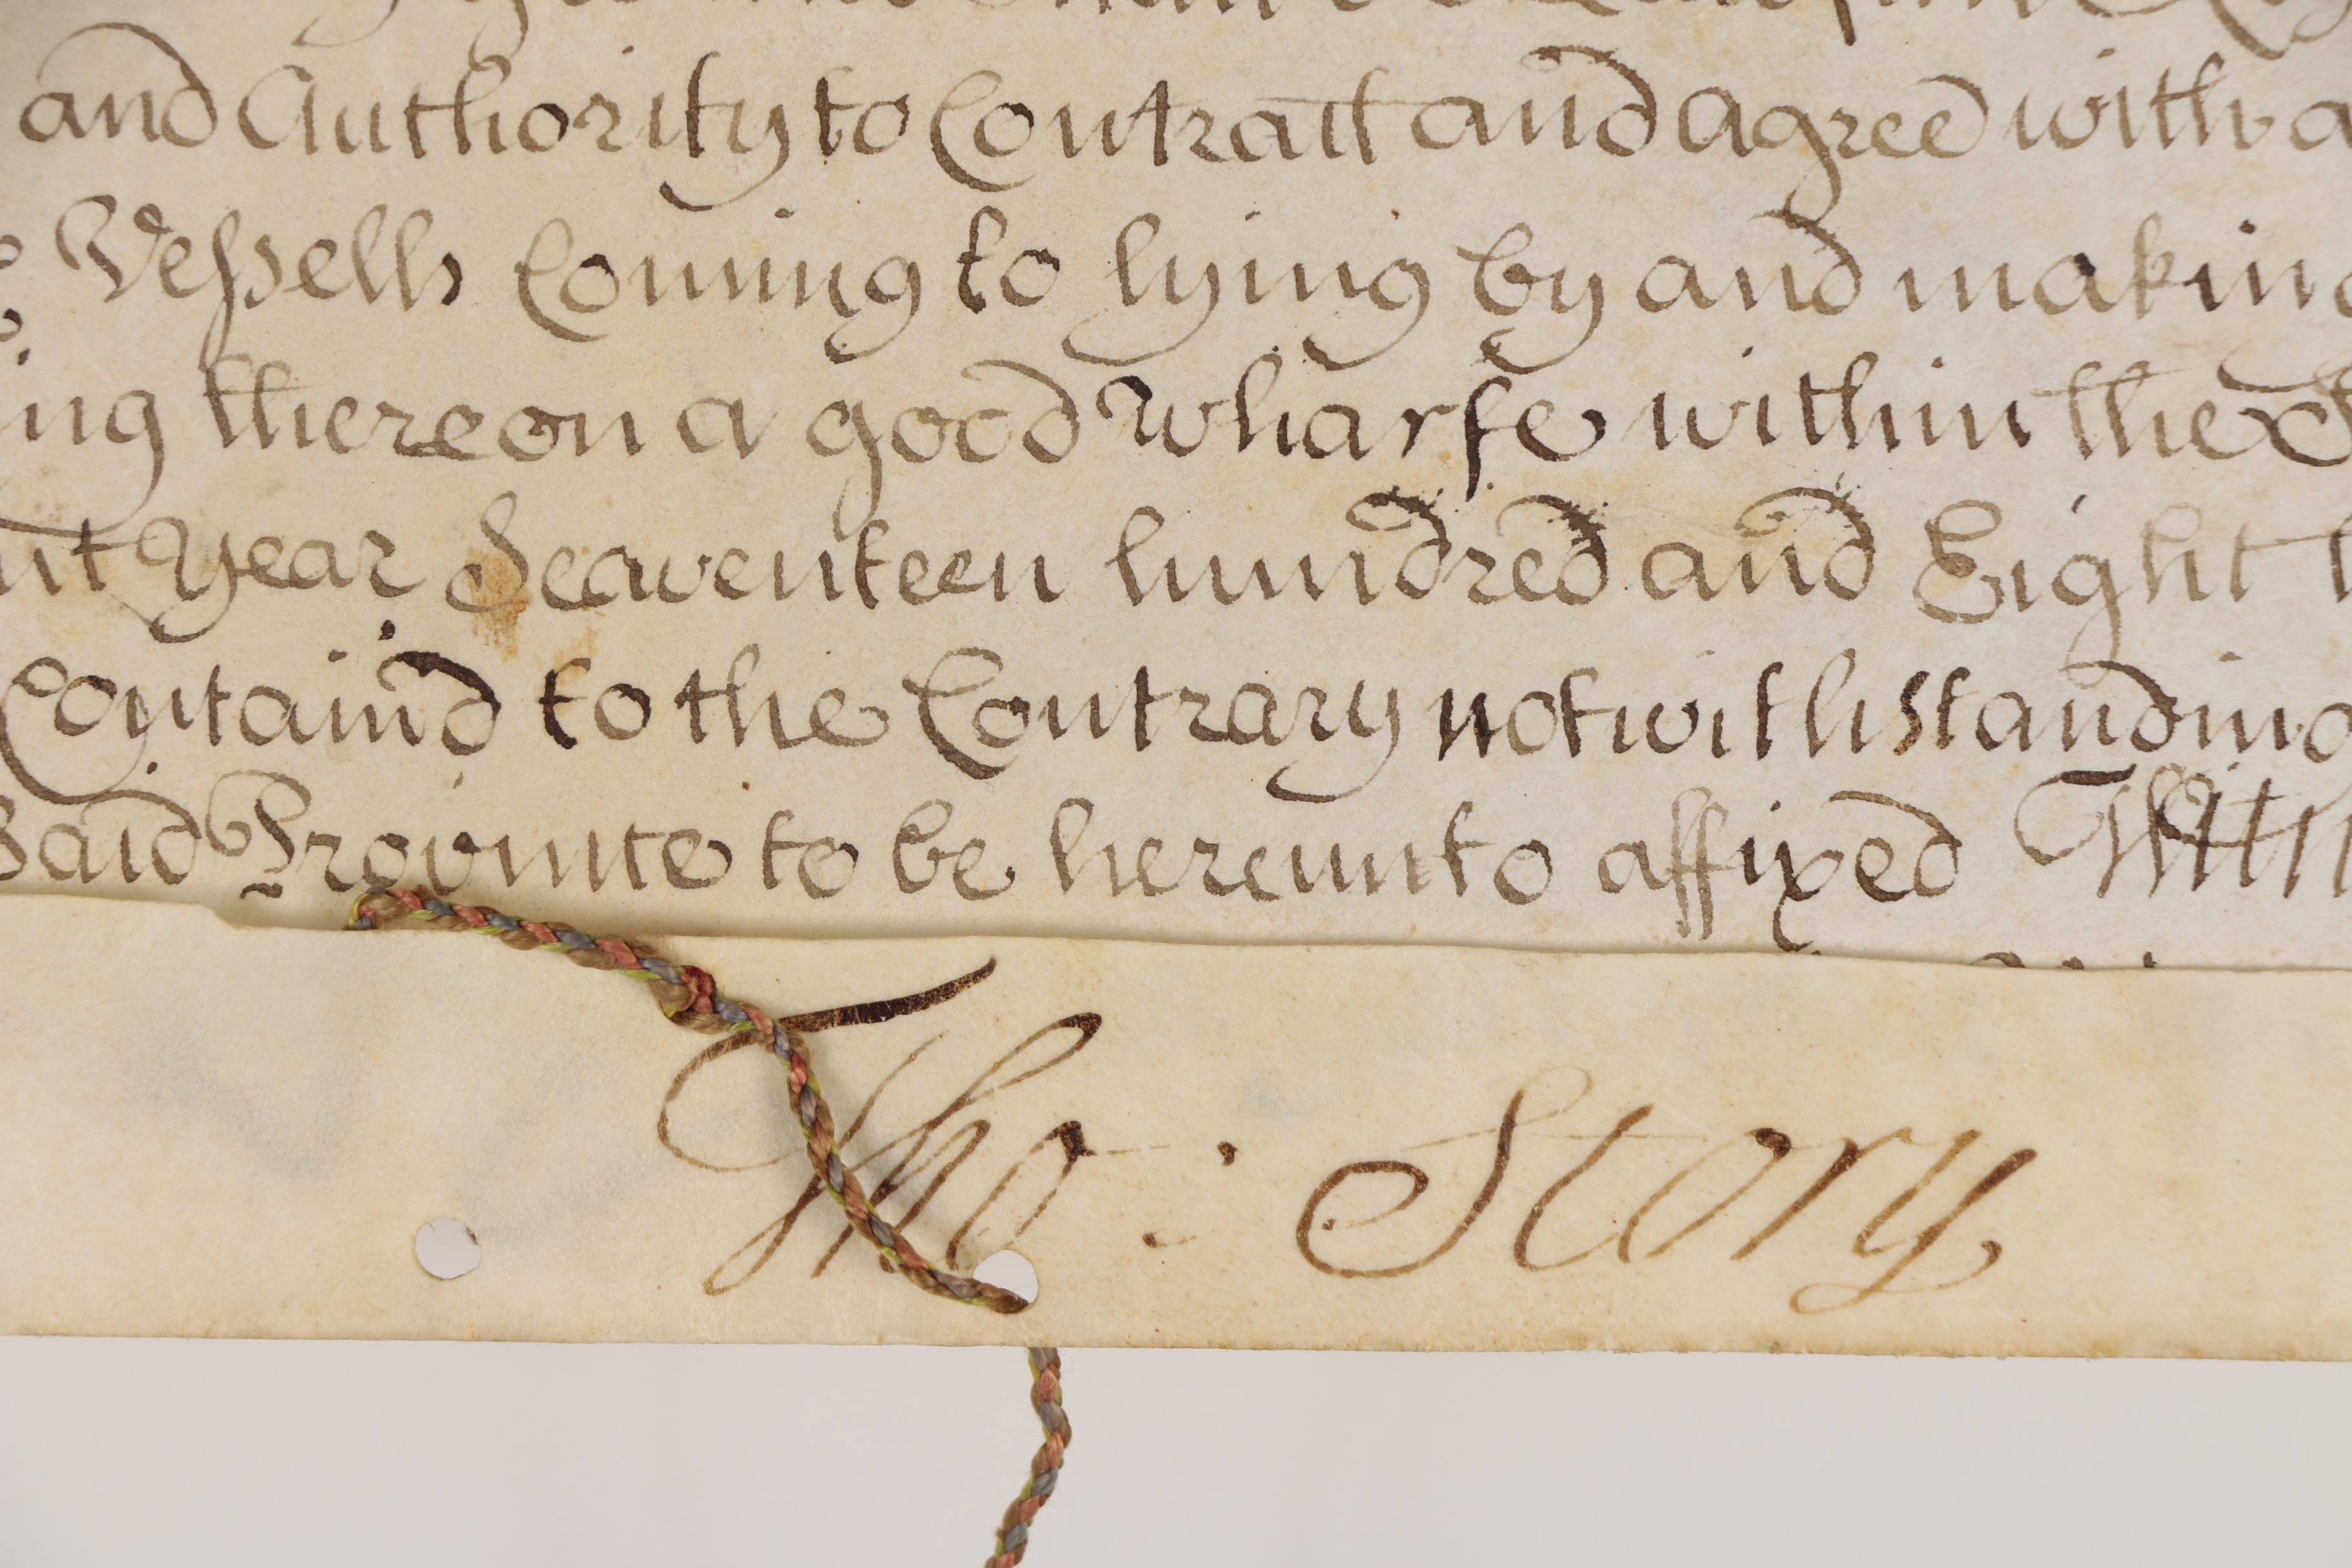 and Authority to Contract and agree with a
Vessells Coming to lying by and making
ing thereon a good wharfe within the
nt year Seaventeen hundred and Eight
Containd to the Contrary notwithstanding
Said Province to be hereunto affixed Witn
Tho: Story